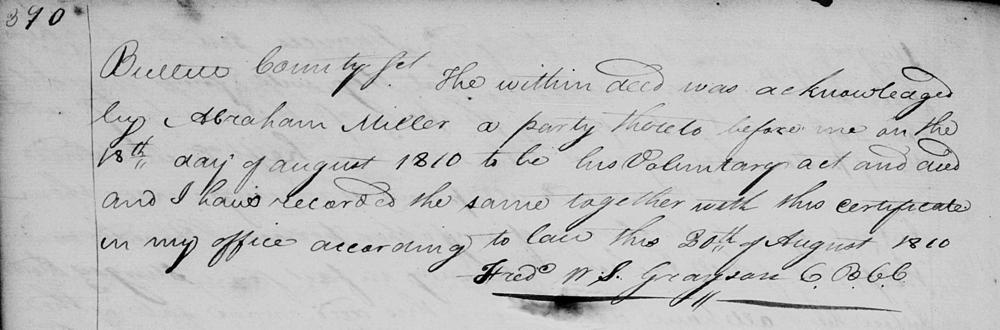 390
Bullitt County Sct. The within deed was acknowledged
by Abraham Miller a party thereto before me on the
18th day of august 1810 to be his Voluntary act and deed
and I have recorded the same together with this certificate
in my office according to law this 30th of August 1810
Fredc W. S. Grayson C. B. C. C.